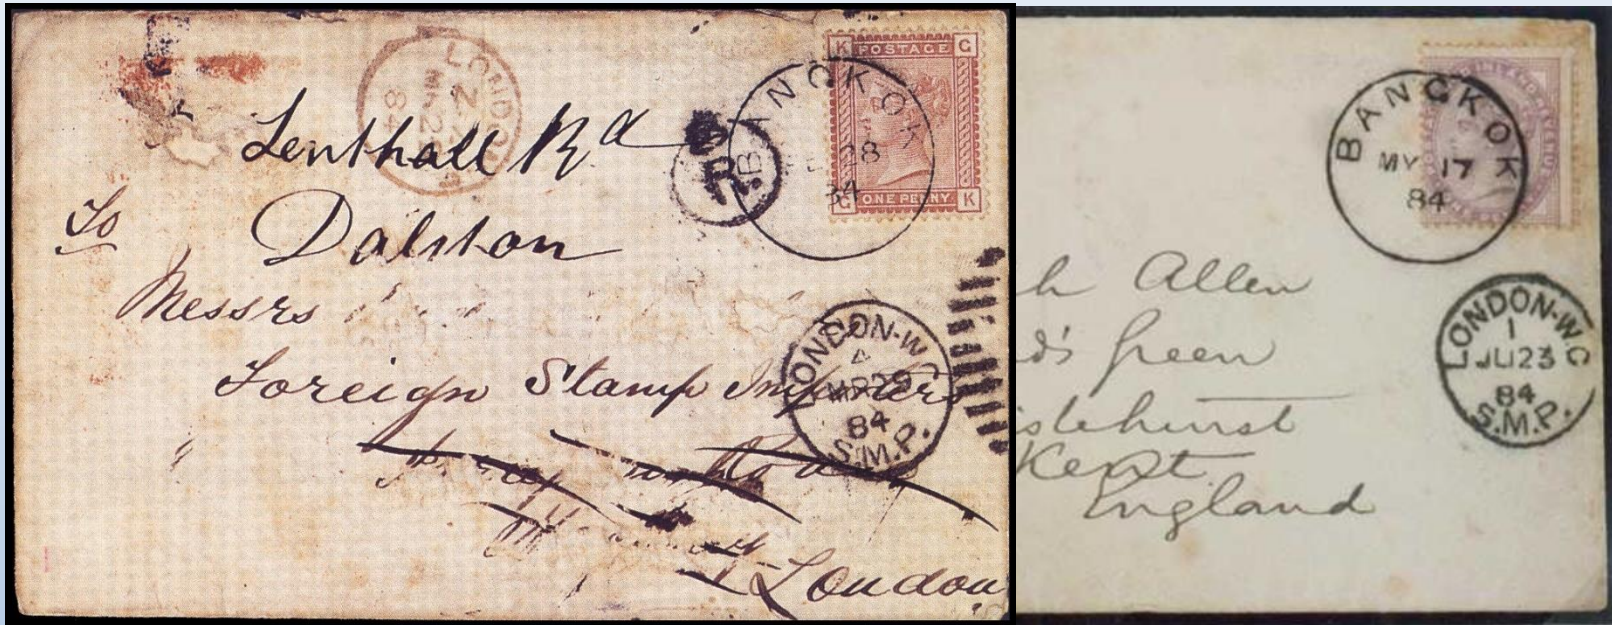 LONDON
Z
MR 29
84
K POSTAGE G
G ONE PENNY K
BANGKOK
28
84
R
Lenthall Rd
To
Dalston
Messrs
Foreign Stamp Importers
London
LONDON-W.C
4
MR 29
84
S.M.P.
INLAND REVENUE
BANGKOK
MY 17
84
h Allen
d's Green
slehurst
Kent
England
LONDON-W.C
1
JU 23
84
S.M.P.